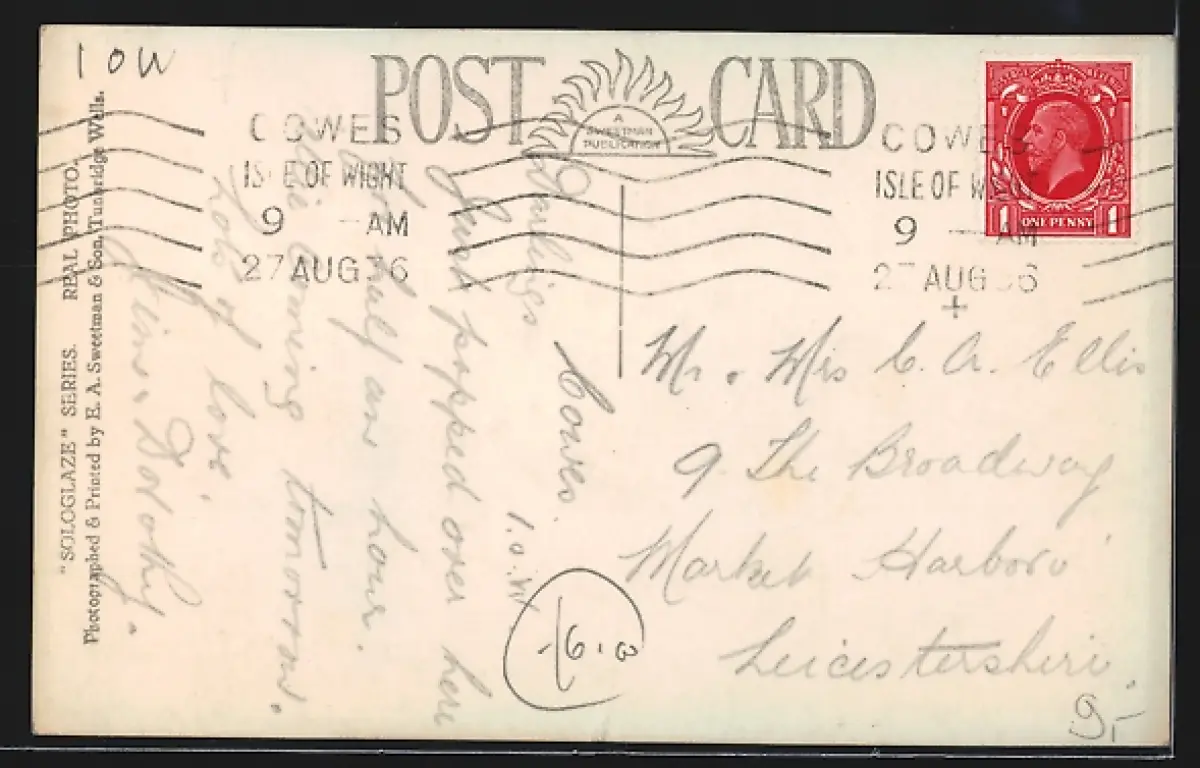 IOW
POST CARD
A
SWEETMAN
PUBLICATION
COWES
ISLE OF WIGHT
9 — AM
27 AUG 36
COWES
ISLE OF W
9 — AM
2 AUG 36
ONE PENNY
1 1
"SOLOGLAZE" SERIES. REAL PHOTO.
Photographed & Printed by E. A. Sweetman & Son, Tunbridge Wells.
Cowes.
I.O.W
Darlings
Just popped over here
for half an hour.
coming tomorrow.
Lots of love
Dorothy.
Mr. Mrs C. A. Ellis
9 The Broadway
Market Harboro'
Leicestershire.
9/-